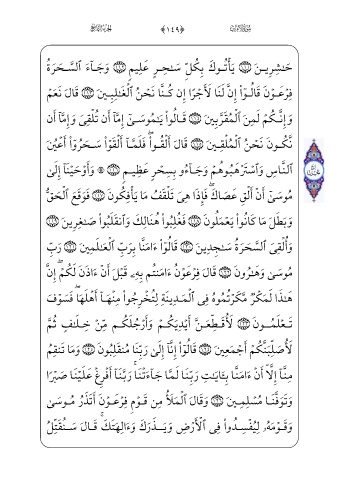 سُورَةُ الأَعْرَافِ ﴿١٤٩﴾ الجُزْءُ التَّاسِعُ
حَٰشِرِينَ ۝١١١ يَأْتُوكَ بِكُلِّ سَٰحِرٍ عَلِيمٍ ۝١١٢ وَجَآءَ ٱلسَّحَرَةُ
فِرْعَوْنَ قَالُوٓا۟ إِنَّ لَنَا لَأَجْرًا إِن كُنَّا نَحْنُ ٱلْغَٰلِبِينَ ۝١١٣ قَالَ نَعَمْ
وَإِنَّكُمْ لَمِنَ ٱلْمُقَرَّبِينَ ۝١١٤ قَالُوا۟ يَٰمُوسَىٰٓ إِمَّآ أَن تُلْقِىَ وَإِمَّآ أَن
نَّكُونَ نَحْنُ ٱلْمُلْقِينَ ۝١١٥ قَالَ أَلْقُوا۟ۖ فَلَمَّآ أَلْقَوْا۟ سَحَرُوٓا۟ أَعْيُنَ
ٱلنَّاسِ وَٱسْتَرْهَبُوهُمْ وَجَآءُو بِسِحْرٍ عَظِيمٍ ۝١١٦ ۞ وَأَوْحَيْنَآ إِلَىٰ
مُوسَىٰٓ أَنْ أَلْقِ عَصَاكَۖ فَإِذَا هِىَ تَلْقَفُ مَا يَأْفِكُونَ ۝١١٧ فَوَقَعَ ٱلْحَقُّ
وَبَطَلَ مَا كَانُوا۟ يَعْمَلُونَ ۝١١٨ فَغُلِبُوا۟ هُنَالِكَ وَٱنقَلَبُوا۟ صَٰغِرِينَ ۝١١٩
وَأُلْقِىَ ٱلسَّحَرَةُ سَٰجِدِينَ ۝١٢٠ قَالُوٓا۟ ءَامَنَّا بِرَبِّ ٱلْعَٰلَمِينَ ۝١٢١ رَبِّ
مُوسَىٰ وَهَٰرُونَ ۝١٢٢ قَالَ فِرْعَوْنُ ءَامَنتُم بِهِۦ قَبْلَ أَنْ ءَاذَنَ لَكُمْۖ إِنَّ
هَٰذَا لَمَكْرٌ مَّكَرْتُمُوهُ فِى ٱلْمَدِينَةِ لِتُخْرِجُوا۟ مِنْهَآ أَهْلَهَاۖ فَسَوْفَ
تَعْلَمُونَ ۝١٢٣ لَأُقَطِّعَنَّ أَيْدِيَكُمْ وَأَرْجُلَكُم مِّنْ خِلَٰفٍ ثُمَّ
لَأُصَلِّبَنَّكُمْ أَجْمَعِينَ ۝١٢٤ قَالُوٓا۟ إِنَّآ إِلَىٰ رَبِّنَا مُنقَلِبُونَ ۝١٢٥ وَمَا تَنقِمُ
مِنَّآ إِلَّآ أَنْ ءَامَنَّا بِـَٔايَٰتِ رَبِّنَا لَمَّا جَآءَتْنَاۚ رَبَّنَآ أَفْرِغْ عَلَيْنَا صَبْرًا
وَتَوَفَّنَا مُسْلِمِينَ ۝١٢٦ وَقَالَ ٱلْمَلَأُ مِن قَوْمِ فِرْعَوْنَ أَتَذَرُ مُوسَىٰ
وَقَوْمَهُۥ لِيُفْسِدُوا۟ فِى ٱلْأَرْضِ وَيَذَرَكَ وَءَالِهَتَكَۚ قَالَ سَنُقَتِّلُ